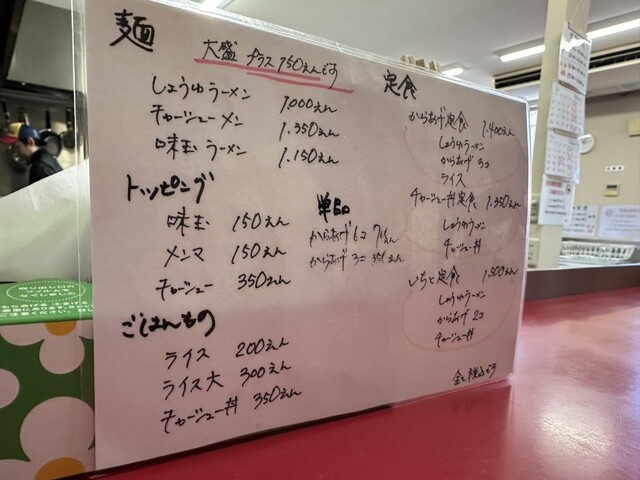 麺
大盛 プラス150えんです
しょうゆラーメン 1,000えん
チャーシューメン 1,350えん
味玉ラーメン 1,150えん
トッピング
味玉 150えん
メンマ 150えん
チャーシュー 350えん
ごはんもの
ライス 200えん
ライス大 300えん
チャーシュー丼 350えん
単品
からあげ 6コ
からあげ 3コ 351えん
定食
からあげ定食 1,400えん
しょうゆラーメン
からあげ 3コ
ライス
チャーシュー丼定食 1,350えん
しょうゆラーメン
チャーシュー丼
いちと定食 1,500えん
しょうゆラーメン
からあげ 2コ
チャーシュー丼
全て税込です